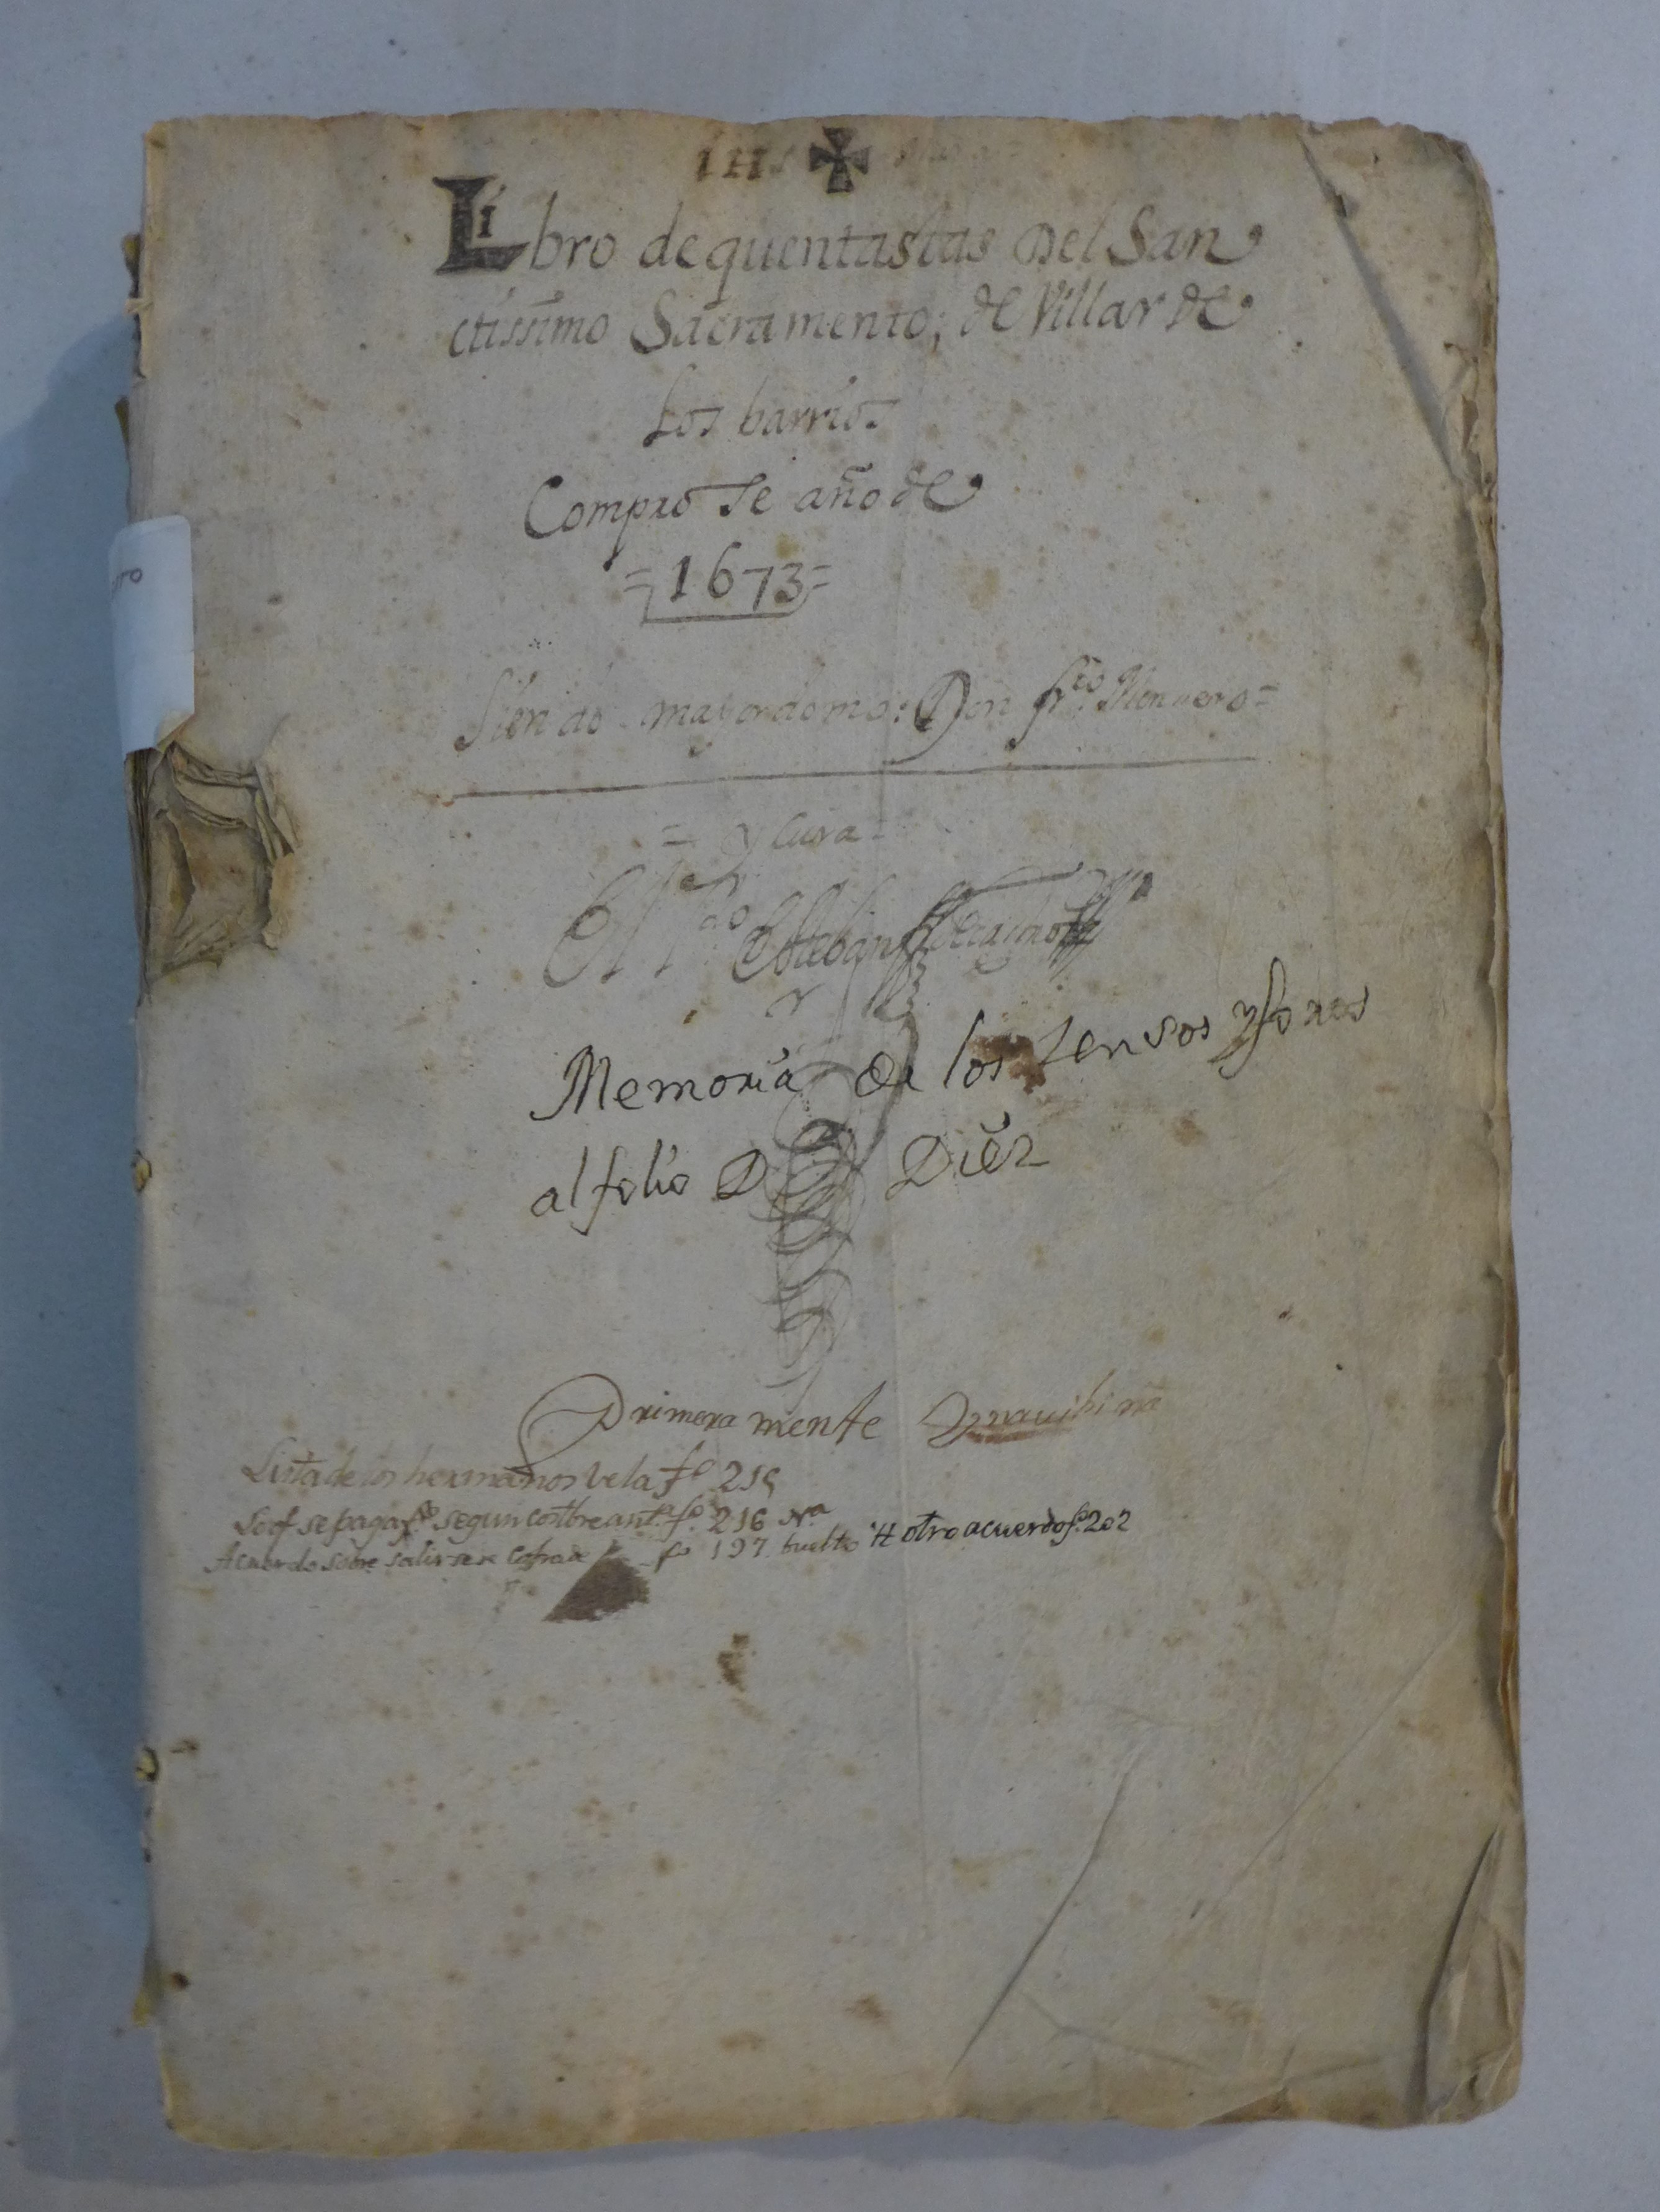 IHS
Libro de quentas las Del San
ctissimo Sacramento; de Villar de
Los barrios
Comprose año de
=1673=
Siendo mayordomo: Don fr.co
= y Cura =
El Esteban
Memoria de los zensos y foros
al folio D Diez
Primeramente
Lista de los hermanos vela f.o 215
se paga segun costbre ant.a f.o 216 Na
Acuerdo sobre salirse cofrade f.o 197 buelto # otro acuerdo f.o 202